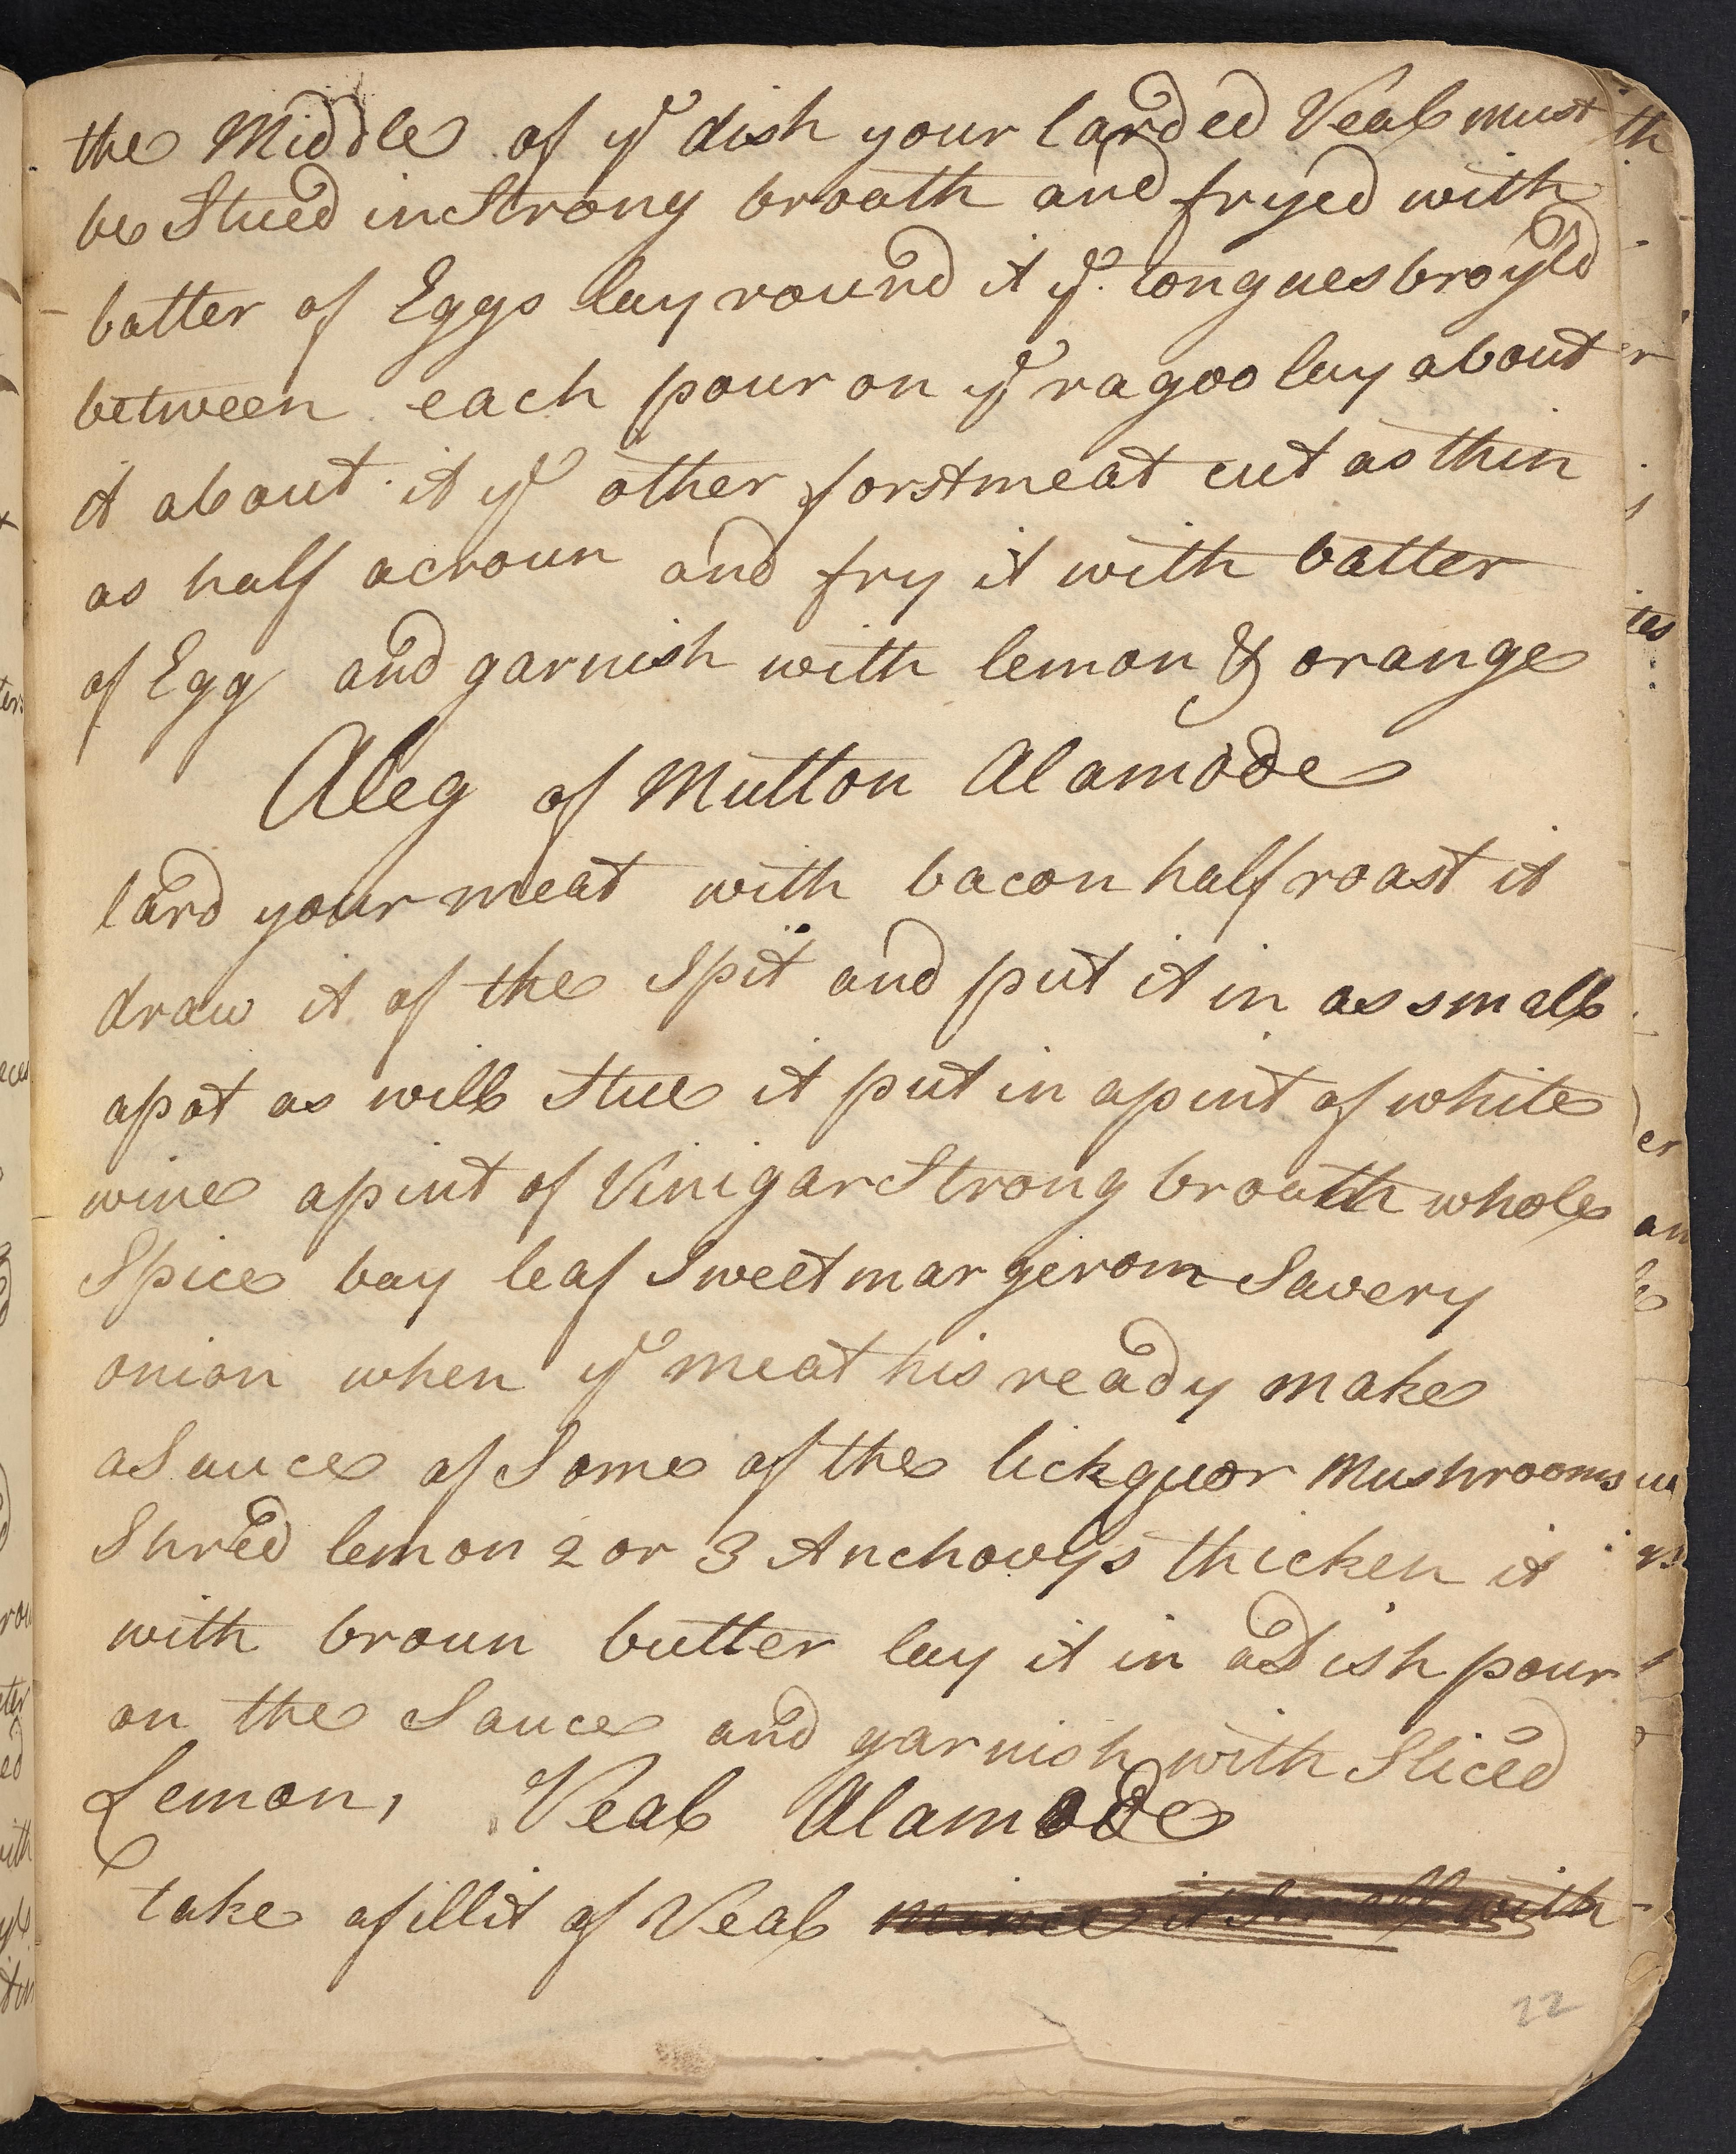 the Middle of ye dish your larded Veal must
be Stued in Strong broath and fryed with
batter of Eggs lay round it ye tongues broyld
between each pour on ye ragoo lay about
it about it ye other forstmeat cut as thin
as half a croun and fry it with batter
of Egg and garnish with lemon & orange
A leg of Mutton Alamode
lard your meat with bacon half roast it
draw it of the Spit and put it in as small
a pot as will Stue it put in a pint of white
wine a pint of Vinigar Strong broath whole
Spice bay leaf Sweet margerom Savery
onion when ye meat his ready make
a Sauce of Some of the lickquor Mushrooms
Shred lemon 2 or 3 Anchovys thicken it
with broun butter lay it in a dish pour
on the Sauce and garnish with Sliced
Lemon, Veal Alamode
take a fillit of Veal mince it Small with
22